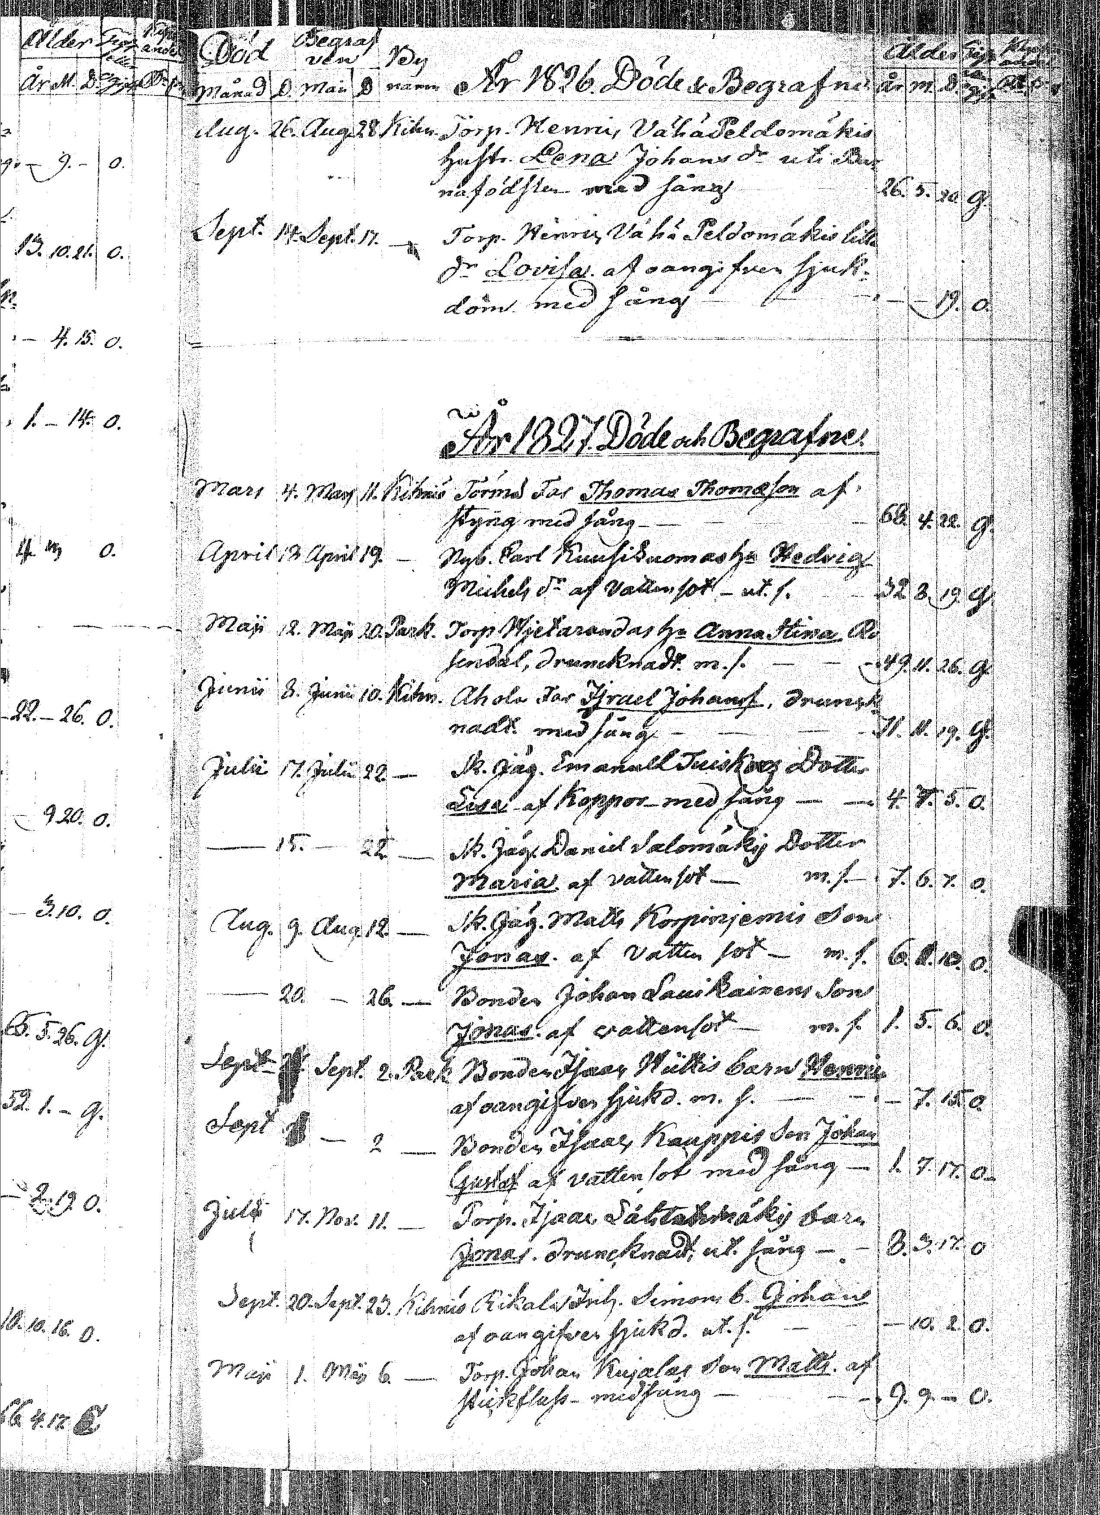 Ålder
År M. D.
9. - 0.
13. 10. 21. 0.
- 4. 15. 0.
1. - 14. 0.
0.
22. - 26. 0.
9 20. 0.
- 3. 10. 0.
65. 5. 26. G.
52. 1. - G.
- 2. 19. 0.
10. 10. 16. 0.
66. 4. 17.
Död Begraf By Ålder
ven
Månad D. Maij D namn År 1826. Döde & Begrafne År M. D.
Aug. 26. Aug. 28. Kihn. Torp. Henric Vähä Peldomäkis
hustr. Lena Johans dr uti Bar
nafödslen med sång 26. 5. 20. G.
Sept. 14. Sept. 17. — Torp. Henric Vähä Peldomäkis lilla
dr Lovisa. af oangifven sjuk-
dom. med sång — — - - 19. 0.
År 1827. Döde och Begrafne.
Mars 4. Mars 11. Kihniö Far Thomas Thomasson af
styng med sång — — 68. 4. 22. G.
April 13 April 19. — Nyb. Carl Kuusiluomas hu Hedvig
Michels dr af Vattensot - ut. s. 32. 8. 19. G.
Maji 12. Maji 20. Park. Torp Anna Stina Ro
sendal, druncknadt. m. s. — — 49. 11. 26. G.
Junii 3. Junii 10. Kihn. Ahola Far Israel Johanss. drunck
nadt. med sång — — 71. 11. 19. G.
Julii 17. Julii 22 — Sk. Jäg. Emanuel Tuiskus Dotter
Lisa af Koppor med sång — — 4. 7. 5. 0.
— 15. — 22 — Sk. Jäg. Daniel Salomäkis Dotter
Maria. af vattensot — m. s. 7. 6. 7. 0.
Aug. 9. Aug. 12. — Sk. Jäg. Matts Korpinjemis Son
Jonas. af Vatten sot — m. s. 6. 10. 0.
— 20. — 26. — Bonden Johan Lauikainens Son
Jonas. af vattensot — m. s. 1. 5. 6. 0.
Sept. Sept. 2. Park Bonden Isaac Hüttis barn Henric
af oangifven sjukd. m. s. — — - 7. 15. 0.
Sept — 2 — Bonden Isaac Kauppis Son Johan
Gustaf af vatten sot med sång — 1. 7. 17. 0.
Julii 17. Nov. 11. — Torp. Isaac barn
Jonas. druncknadt, ut. sång — - 3. 3. 17. 0
Sept. 20. Sept. 23. Kihniö Rikala Simons b. Johan
af oangifven sjukd. ut. s. — - 10. 2. 0.
Maji 1. Maji 6. — Torp. Johan Kujalas Son Matts. af
med sång — — 9. 9. - 0.